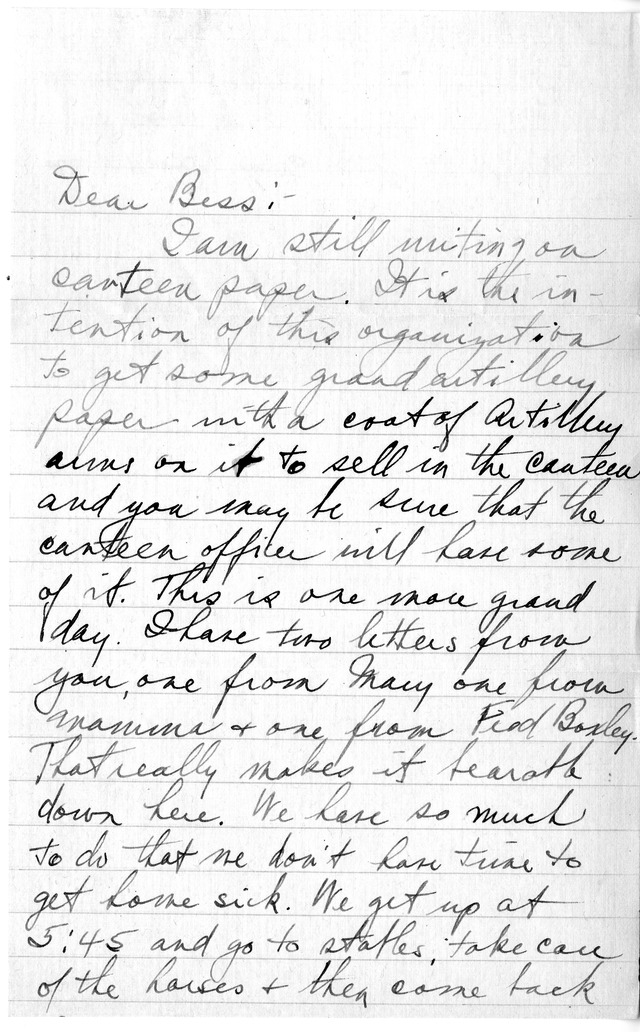 Dear Bess:-
I am still writing on
canteen paper. It is the in-
tention of this organization
to get some grand artillery
paper with a coat of Artillery
arms on it to sell in the canteen
and you may be sure that the
canteen officer will have some
of it. This is one more grand
day. I have two letters from
you, one from Mary one from
mamma & one from Fred Boxley.
That really makes it bearable
down here. We have so much
to do that we don't have time to
get home sick. We get up at
5:45 and go to stables, take care
of the horses & then come back